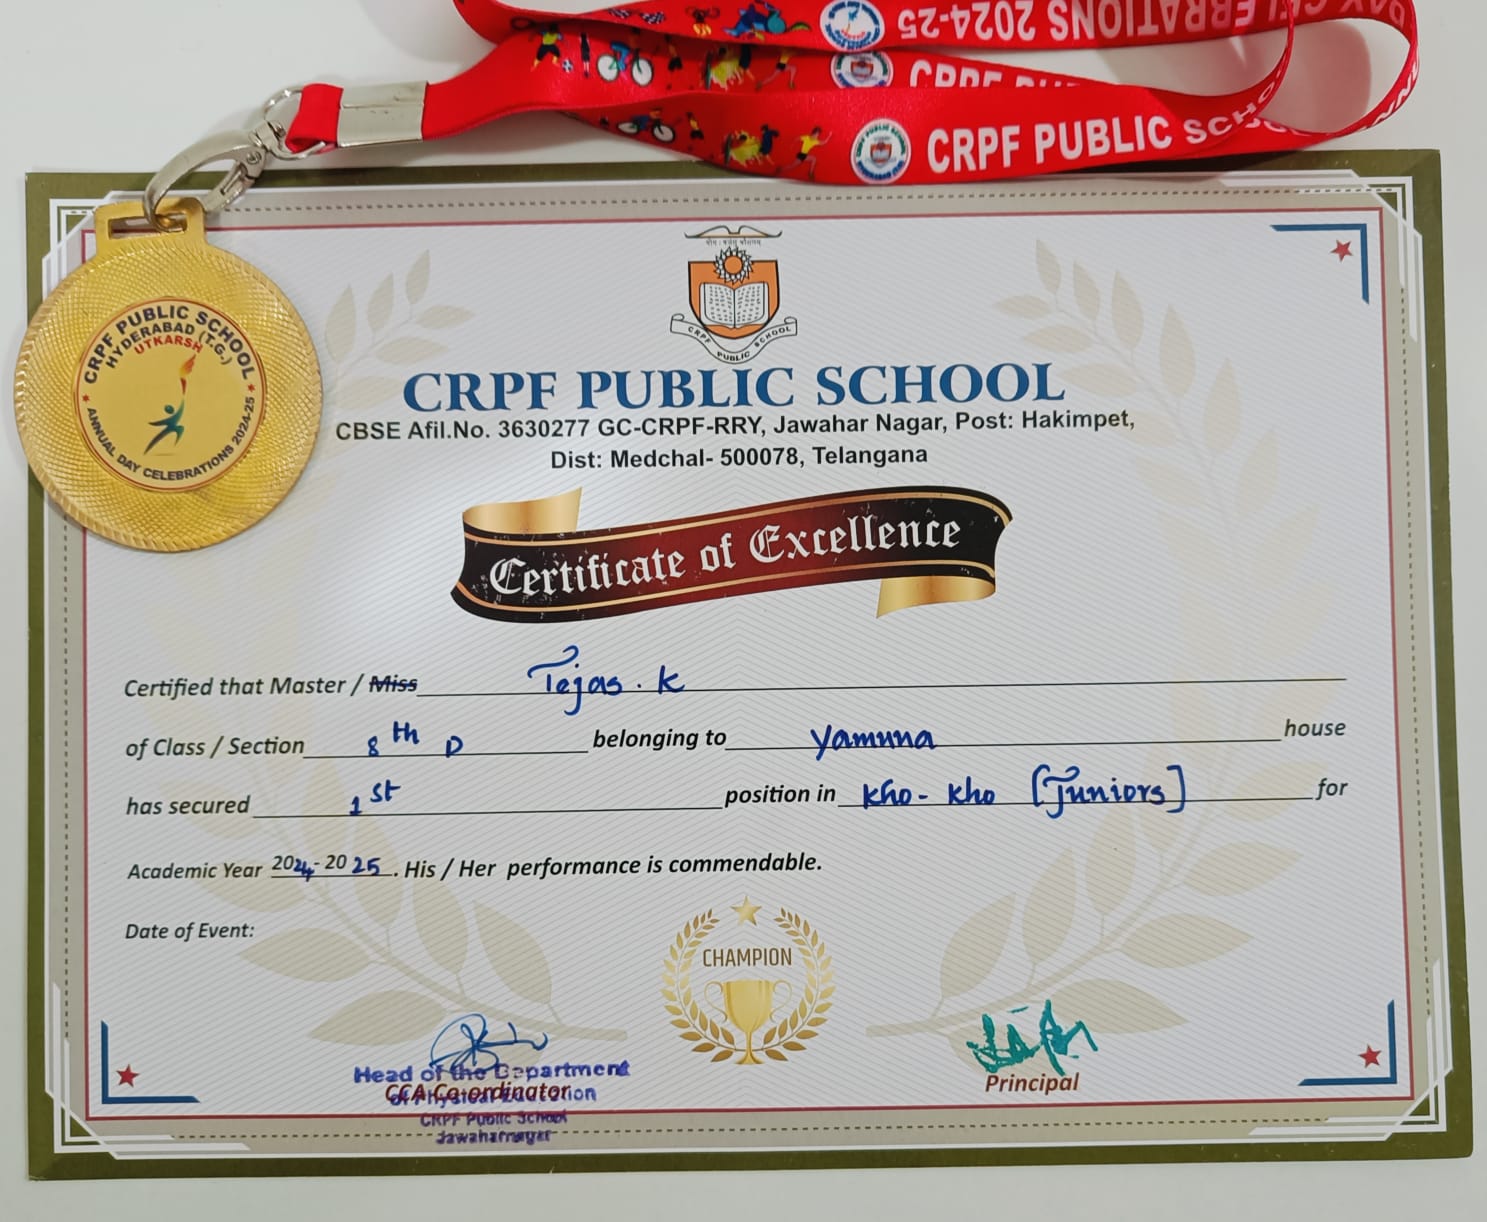 DAY CELEBRATIONS 2024-25
CRPF PUBLIC SCHOOL
CRPF PUBLIC SCHOOL
HYDERABAD (T.G.)
UTKARSH
★ ANNUAL DAY CELEBRATIONS 2024-25 ★
CRPF PUBLIC SCHOOL
CRPF PUBLIC SCHOOL
CBSE Afil.No. 3630277 GC-CRPF-RRY, Jawahar Nagar, Post: Hakimpet,
Dist: Medchal- 500078, Telangana
Certificate of Excellence
Certified that Master / Miss Tejas . K
of Class / Section 8th D belonging to Yamuna house
has secured 1st position in Kho - Kho [Juniors] for
Academic Year 2024-2025. His / Her performance is commendable.
Date of Event:
CHAMPION
Head of the Department
CCA Co-ordinator
of Physical Education
CRPF Public School
Jawaharnagar
Principal